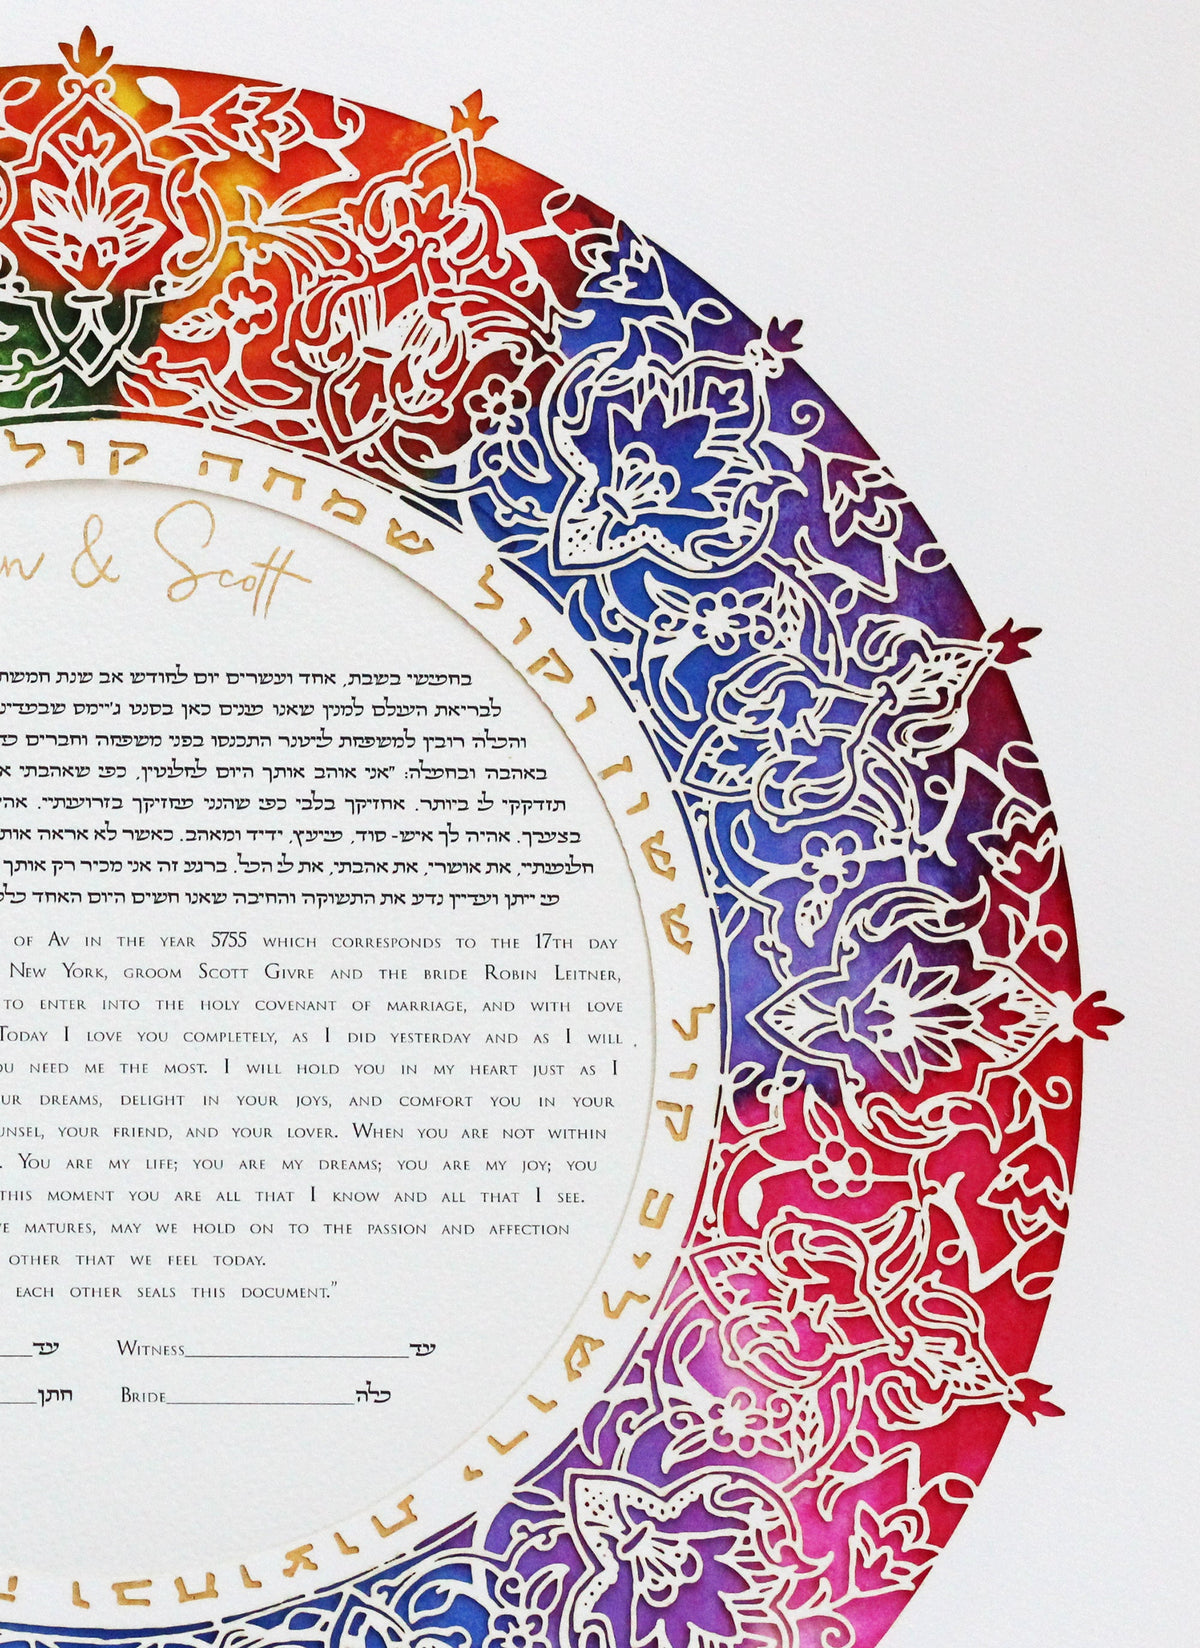 ובחוצות ירושלים קול ששון וקול שמחה קול
& Scott
בחמישי בשבת, אחד ועשרים יום לחודש אב שנת חמשת
לבריאת העולם למנין שאנו מונים כאן בסנט ג'יימס שבמדינ
והכלה רובין למשפחת לייטנר התכנסו בפני משפחה וחברים
באהבה ובחמלה: "אני אוהב אותך היום לחלוטין, כפי שאהבתי
תזדקקי לי ביותר. אחזיקך בלבי כפי שהנני מחזיקך בזרועותיי.
בצערך. אהיה לך איש-סוד, מייעץ, ידיד ומאהב. כאשר לא אראה
חלומותיי, את אושרי, את אהבתי, את לי הכל. ברגע זה אני מכיר רק אותך
מי ייתן ועדיין נדע את התשוקה והחיבה שאנו חשים היום האחד
of Av in the year 5755 which corresponds to the 17th day
New York, groom Scott Givre and the bride Robin Leitner,
to enter into the holy covenant of marriage, and with love
Today I love you completely, as I did yesterday and as I will
need me the most. I will hold you in my heart just as I
dreams, delight in your joys, and comfort you in your
your friend, and your lover. When you are not within
. You are my life; you are my dreams; you are my joy; you
this moment you are all that I know and all that I see.
matures, may we hold on to the passion and affection
other that we feel today.
each other seals this document."
עד Witness עד
חתן Bride כלה